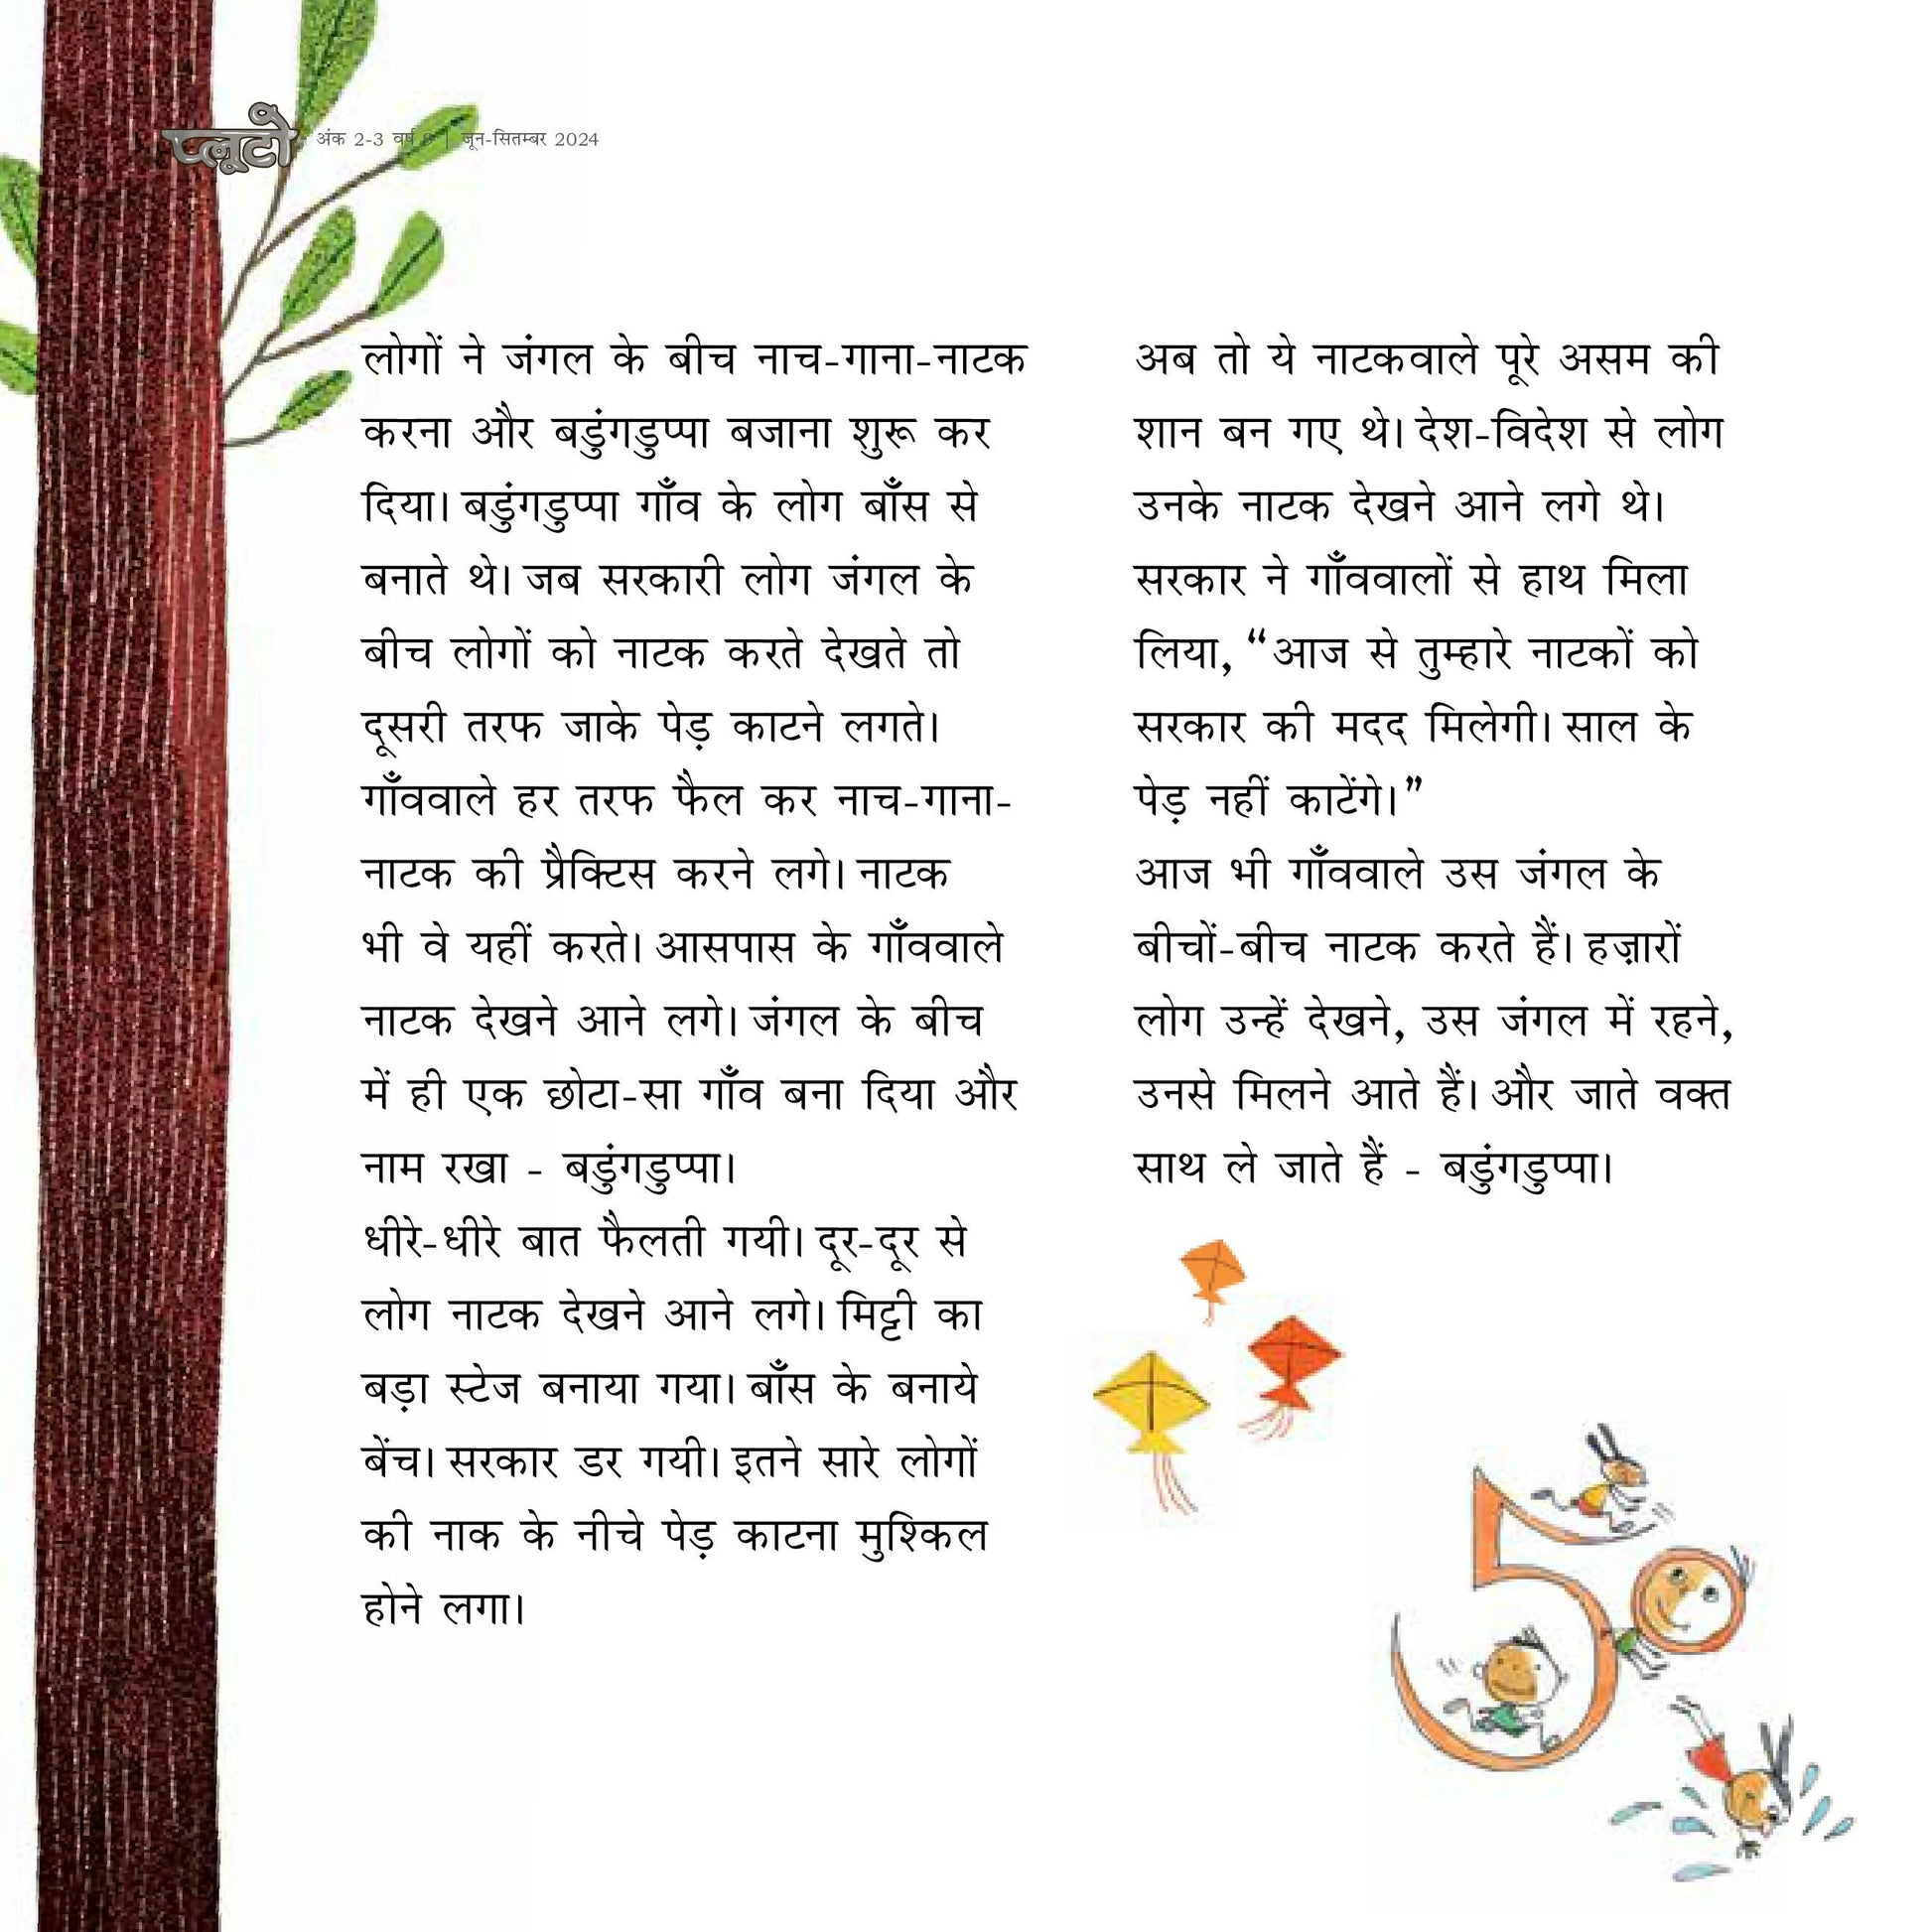 प्लूटो अंक 2-3 वर्ष 8 | जून-सितम्बर 2024
लोगों ने जंगल के बीच नाच-गाना-नाटक
करना और बड़ुंगडुप्पा बजाना शुरू कर
दिया। बड़ुंगडुप्पा गाँव के लोग बाँस से
बनाते थे। जब सरकारी लोग जंगल के
बीच लोगों को नाटक करते देखते तो
दूसरी तरफ जाके पेड़ काटने लगते।
गाँववाले हर तरफ फैल कर नाच-गाना-
नाटक की प्रैक्टिस करने लगे। नाटक
भी वे यहीं करते। आसपास के गाँववाले
नाटक देखने आने लगे। जंगल के बीच
में ही एक छोटा-सा गाँव बना दिया और
नाम रखा - बड़ुंगडुप्पा।
धीरे-धीरे बात फैलती गयी। दूर-दूर से
लोग नाटक देखने आने लगे। मिट्टी का
बड़ा स्टेज बनाया गया। बाँस के बनाये
बेंच। सरकार डर गयी। इतने सारे लोगों
की नाक के नीचे पेड़ काटना मुश्किल
होने लगा।
अब तो ये नाटकवाले पूरे असम की
शान बन गए थे। देश-विदेश से लोग
उनके नाटक देखने आने लगे थे।
सरकार ने गाँववालों से हाथ मिला
लिया, “आज से तुम्हारे नाटकों को
सरकार की मदद मिलेगी। साल के
पेड़ नहीं काटेंगे।”
आज भी गाँववाले उस जंगल के
बीचों-बीच नाटक करते हैं। हज़ारों
लोग उन्हें देखने, उस जंगल में रहने,
उनसे मिलने आते हैं। और जाते वक्त
साथ ले जाते हैं - बड़ुंगडुप्पा।
50